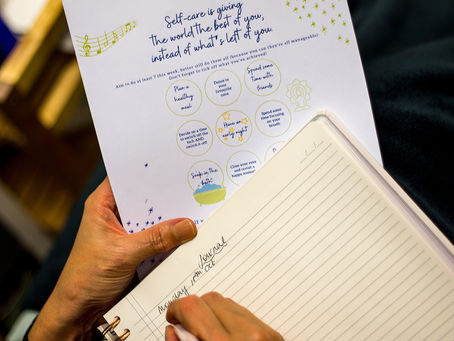 Self-care is giving
the world the best of you,
instead of what's left of you.
Aim to do at least 7 this week, better still do them all (because you can they're all manageable)
Don't forget to tick off what you've achieved!
Plan a
healthy
meal
Dance to
your
favourite
tune
Spend some
time with
friends
Decide on a time
to switch off the
tech AND
switch it off!
Have an
early night
Spend some
time focusing
on your
breath
Soak in the
bath
Close your eyes
and revisit a
happy
Journal
Monday 18th Oct